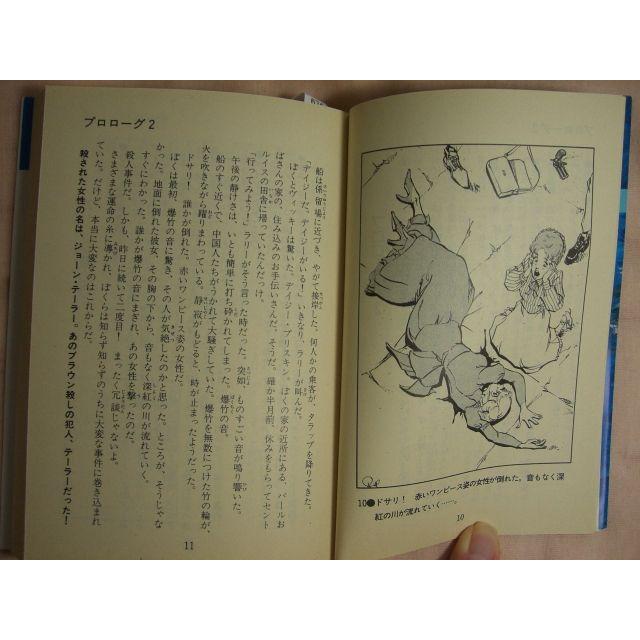 プロローグ2
船は係留場に近づき、やがて接岸した。何人かの乗客が、タラップを降りてきた。
「デイジーだ、デイジーがいる！」いきなり、ラリーが叫んだ。
ぼくとヴィッキーは驚いた。デイジー・ブリスキン。ぼくの家の近所にある、パールお
ばさんの家の、住み込みのお手伝いさんだ。そうだ。確か半月前、休みをもらってセント
ルイスの田舎に帰っていたんだっけ。
「行ってみよう！」ラリーがそう言った時だった。突如、ものすごい音が鳴り響いた。
午後の静けさは、いとも簡単に打ち砕かれてしまった。爆竹の音。
船のすぐ近くで、中国人たちがうかれて大騒ぎしていた。爆竹を無数につけた竹の輪が、
火を吹きながら躍りまわっている。静寂がもどると、時が止まったようだった。
ドサリ！ 誰かが倒れた。赤いワンピース姿の女性だ。
ぼくは最初、爆竹の音に驚き、その人が気絶したのかと思った。ところが、そうじゃな
かった。地面に倒れた彼女、その胸の下から、音もなく深紅の川が流れていく。
すぐにわかった。誰かが爆竹の音にまぎれ、あの女性を撃ったのだ。
殺人事件だ。しかも、昨日に続いて二度目！ まったく冗談じゃないよ。
さまざまな運命の糸に導かれ、ぼくらは知らず知らずのうちに大変な事件に巻き込まれ
ていた。だけど、本当に大変なのはこれからだ。
殺された女性の名は、ジョーン・テーラー。あのブラウン殺しの犯人、テーラーだった！
11
10●ドサリ！ 赤いワンピース姿の女性が倒れた。音もなく深
紅の川が流れていく……。
10